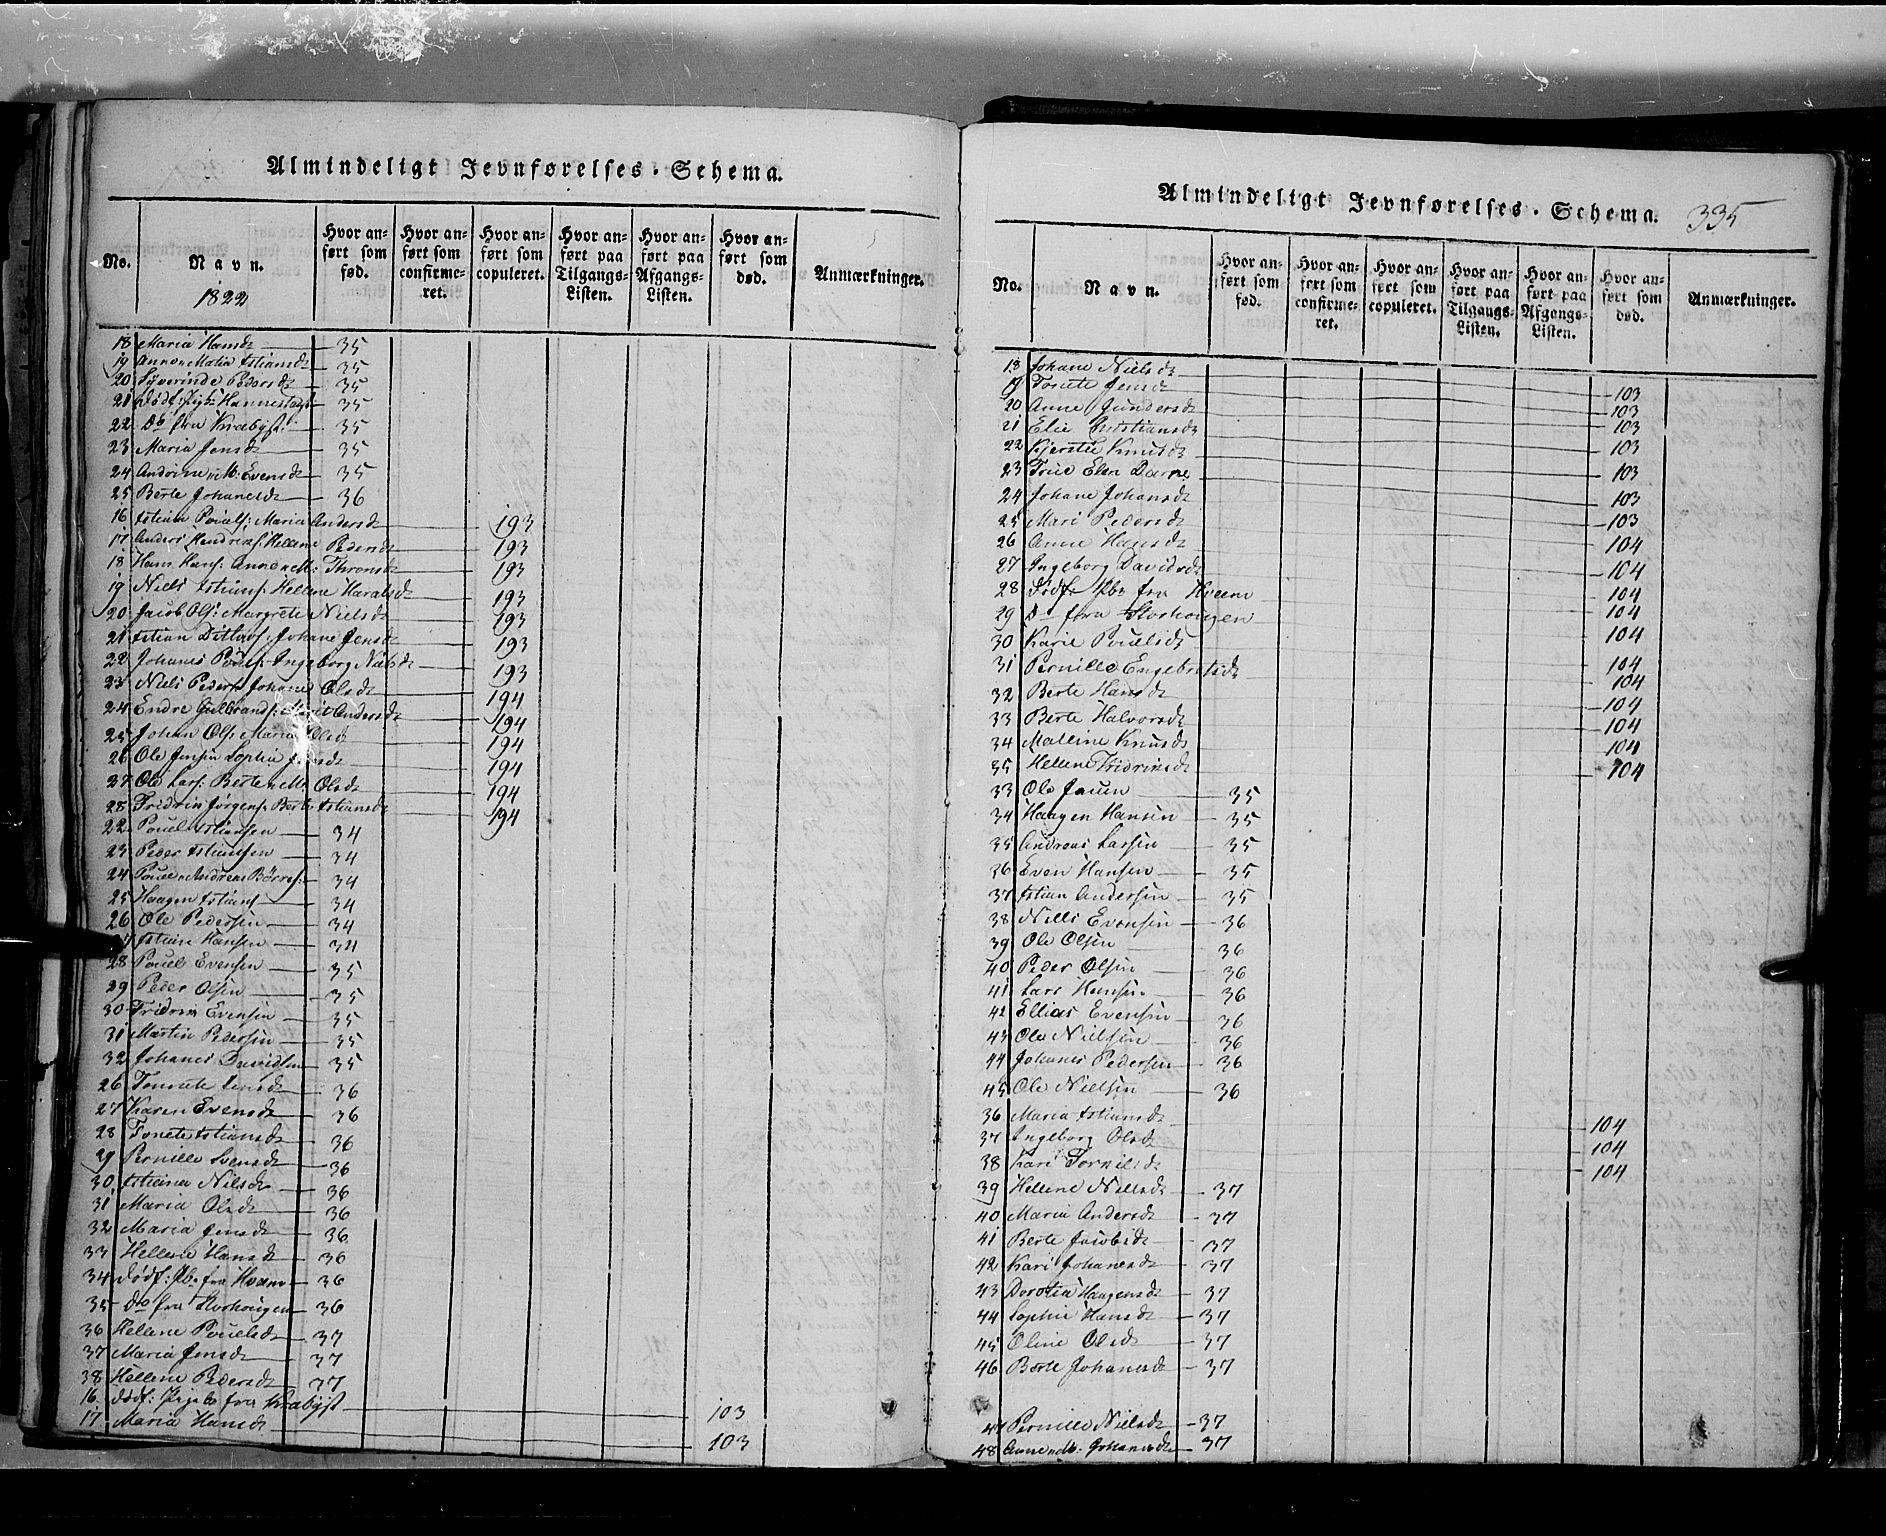 Almindeligt Jevnførelses-Schema.
No. Navn. Hvor anført som fød. Hvor anført som confirmeret. Hvor anført som copuleret. Hvor anført paa Tilgangs-Listen. Hvor anført paa Afgangs-Listen. Hvor anført som død. Anmærkninger.
1822
18 Maria Hansd 35
19 Anne Matia tstiansd 35
20 Syverinde Pedersd 35
21 Dødf: 35
22 Do fra Kræbyst. 35
23 Maria Jensd 35
24 M: Evensd 35
25 Berte Johanesd 36
16 tstian Poulf: Maria Andersd 193
17 Anders Hendrikf: Hellene Pedersd 193
18 Hans Hansf: AnneM: Thronsd 193
19 Niels tstiansf: Hellene Haralsd 193
20 Jacob Olf: Margrete Nielsd 193
21 tstian Ditlavf: Johane Jensd 193
22 Johanes Poulf: Ingeborg Nielsd 193
23 Niels Pedersf: Johane Olsd 194
24 Endre Gulbrandf: Andersd 194
25 Johan Olf: Maria Olsd 194
26 Ole Jensen Sophia 194
27 Ole Larsf: Berte M: Olsd 194
28 Fridrik Jørgenf: Berte tstiansd 194
22 Pouel tstiansen 34
23 Peder tstiansen 34
24 Pouel Andreas Børresf: 34
25 Haagen tstiansf 34
26 Ole Pedersen 34
27 tstian Hansen 34
28 Pouel Evensen 35
29 Peder Olsen 35
30 Fridrik Evensen 35
31 Martin Pedersen 35
32 Johanes Davidsen 35
26 Tonnete Jensd 36
27 Karen Evensd 36
28 Tonete tstiansd 36
29 Pernille Svensd 36
30 tstiana Nilsd 36
31 Maria Olsd 36
32 Maria Jensd 36
33 Hellene Hansd 36
34 Dødf: Pb: fra Hveem 36
35 Do fra Storhougen 36
36 Hellene Pouelsd 37
37 Maria Jensd 37
38 Hellene Pedersd 37
16 Dødf: Pigeb fra Kræbyst 103
17 Maria Hansd 103
Almindeligt Jevnførelses-Schema. 335
No. Navn. Hvor anført som fød. Hvor anført som confirmeret. Hvor anført som copuleret. Hvor anført paa Tilgangs-Listen. Hvor anført paa Afgangs-Listen. Hvor anført som død. Anmærkninger.
18 Johane Nielsd 103
19 Tonete Jensd 103
20 Anne Gundersd 103
21 Elie Christiansd 103
22 Kjerstie Knusd 103
23 Frue Elen Darre 103
24 Johane Johansd 103
25 Mari Pedersd 104
26 Anne Hansd 104
27 Ingeborg Davidsd 104
28 Dødf: Pb: fra Hveem 104
29 Do fra Storhougen 104
30 Karie Pouelsd 104
31 Pernille Engebretsd 104
32 Berte Hansd 104
33 Berte Halvorsd 104
34 Malline Knusd 104
35 Hellene Fridriksd 104
33 Ole 35
34 Haagen Hansen 35
35 Andreas Larsen 35
36 Even Hansen 35
37 tstian Andersen 35
38 Nills Evensen 36
39 Ole Olsen 36
40 Peder Olsen 36
41 Lars Hansen 36
42 Ellias Evensen 36
43 Ole Nielsen 36
44 Johanes Pedersen 36
45 Ole Nielsen 36
36 Maria tstiansd 104
37 Ingeborg Olsd 104
38 Kari Tornilsd 104
39 Hellene Nielsd 37
40 Maria Andersd 37
41 Berte Jacobsd 37
42 Kari Johanesd 37
43 Dorotia Haagensd 37
44 Sophie Hansd 37
45 Oline Olsd 37
46 Berte Johanesd 37
47 Pernille Nielsd 37
48 Anne M: Johanesd 37